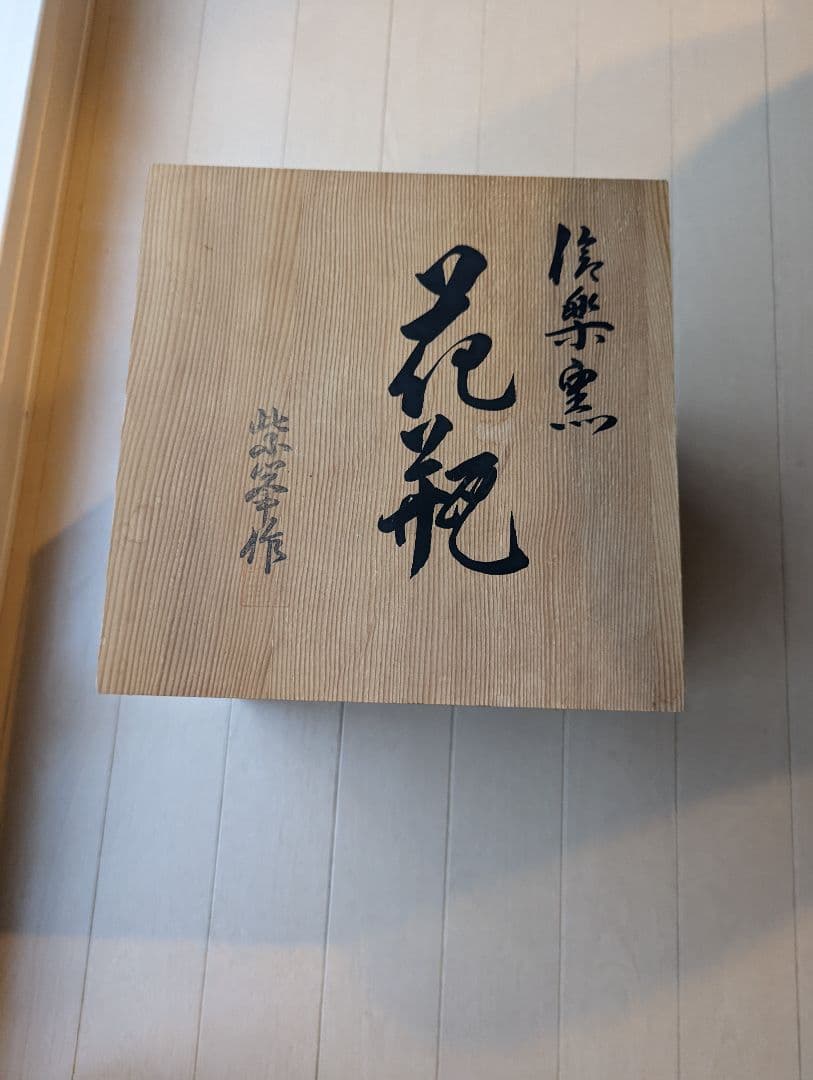 信楽窯
花瓶
紫峯作